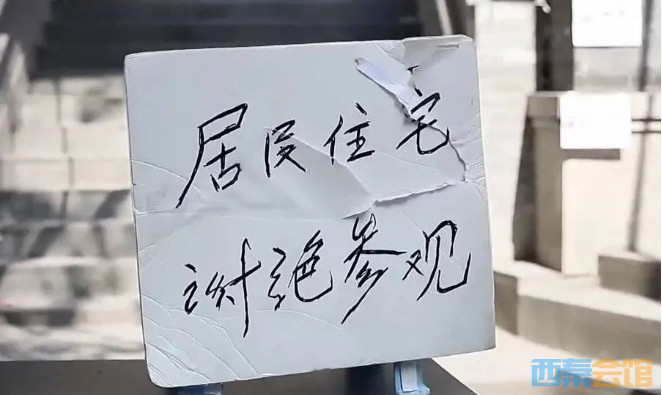 居民住宅
谢绝参观
西秦会馆